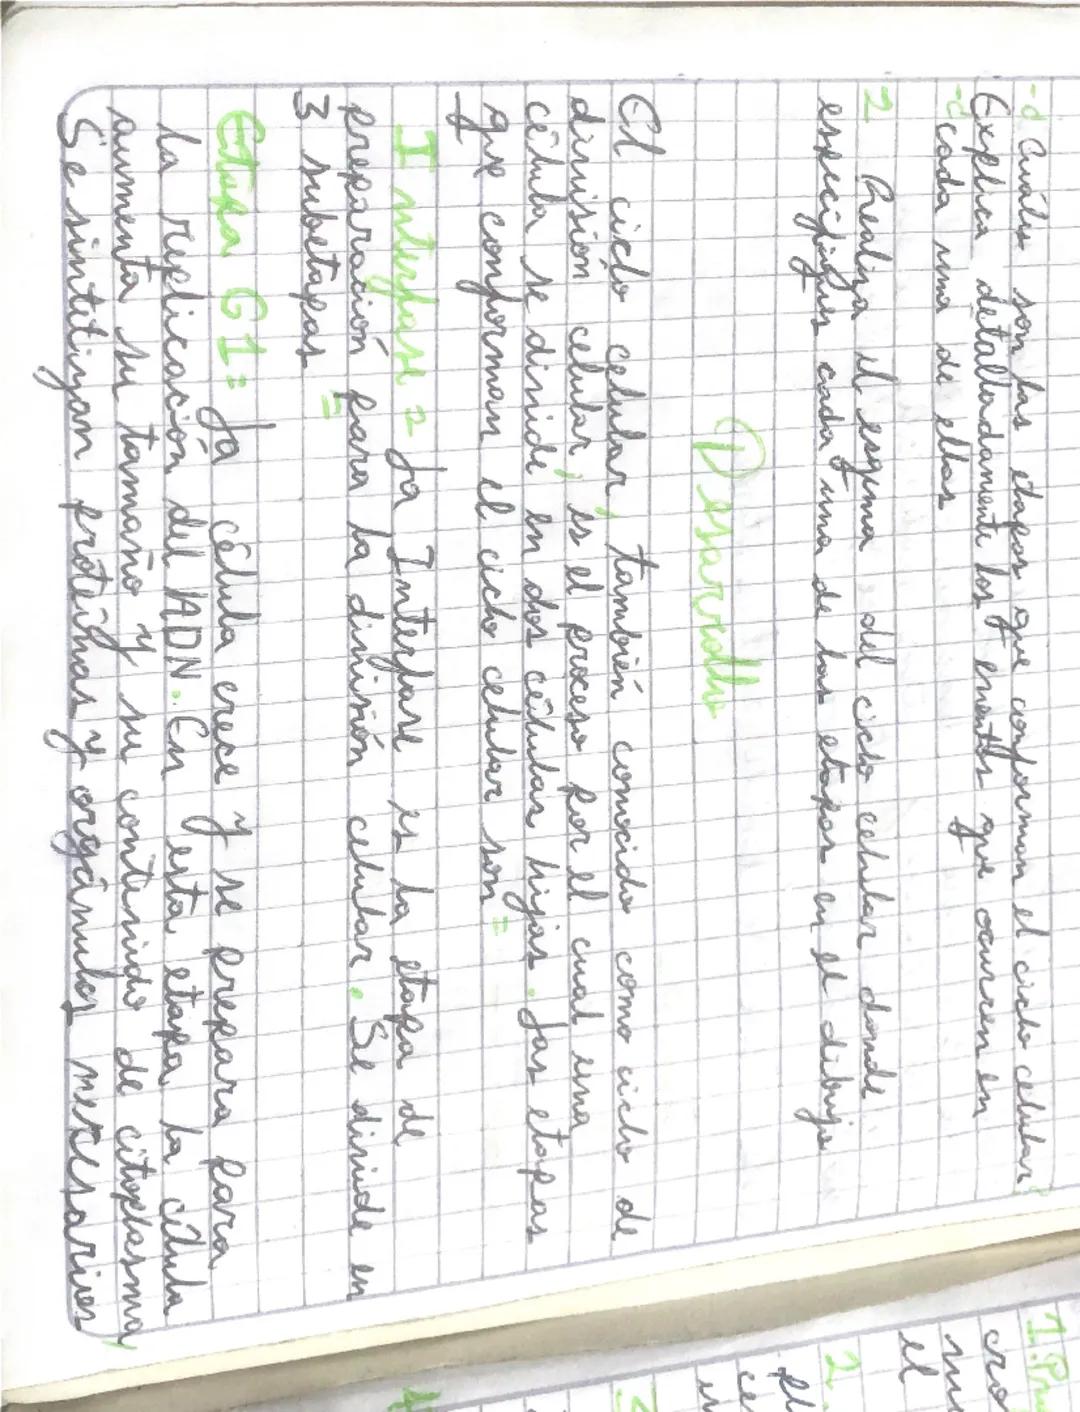 -d Cuáles son las etapas que conforman el ciclo celular?
Explica detalladamente los eventos que ocurren en
-d cada una de ellas
2 Realiza el esquema del ciclo celular donde
especifiques cada una de las etapas en el dibujo
Desarrollo
El ciclo celular, también conocido como ciclo de
división celular, es el proceso por el cual una
célula se divide en dos células hijas. Las etapas
que conforman el ciclo celular son =
Interfase = La Interfase es la etapa de
preparación para la división celular. Se divide en
3 subetapas =
Etapa G1: La célula crece y se prepara para
la replicación del ADN. En esta etapa la célula
aumenta su tamaño y su contenido de citoplasma
Se sintetizan proteínas y orgánulos necesarios
1.
cro
el
2.